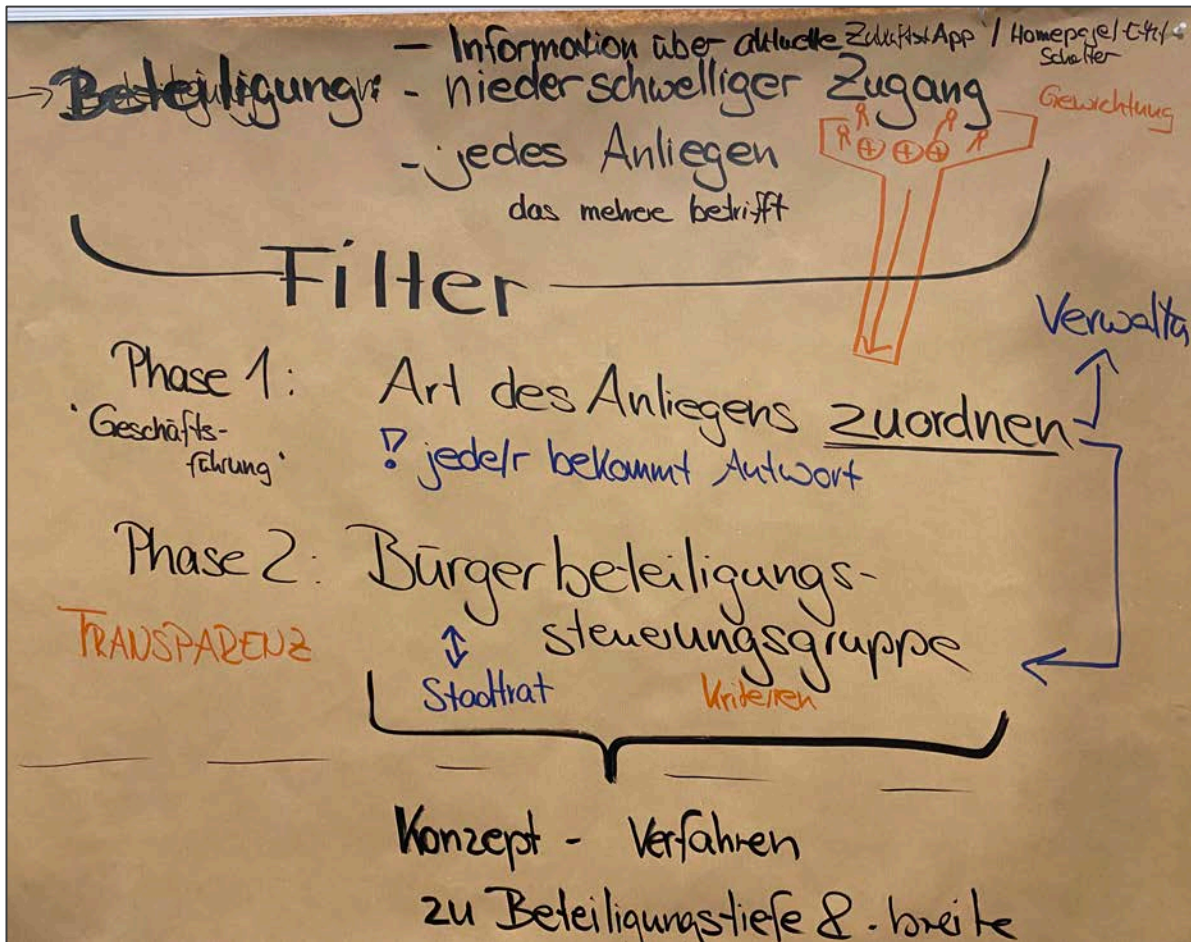 — Information über aktuelle Zukunfts App / Homepage /
Schalter
→ Beteiligung: - niederschwelliger Zugang
Gewichtung
- jedes Anliegen
das mehere betrifft
Filter
Verwaltg
Phase 1: Art des Anliegens zuordnen
'Geschäfts-
führung'
! jede/r bekommt Antwort
Phase 2: Bürgerbeteiligungs-
steuerungsgruppe
TRANSPARENZ
Stadtrat
Kriterien
Konzept - Verfahren
zu Beteiligungstiefe & -breite